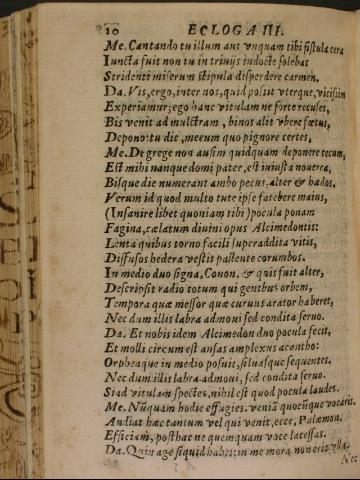 10 ECLOGA III.
Me. Cantando tu illum aut vnquam tibi fistula cera
Iuncta fuit non tu in triuijs indocte solebas
Stridenti miserum stipula disperdere carmen.
Da. Vis, ergo, inter nos, quid possit vterque, vicissim
Experiamur; ego hanc vitulam ne forte recuses,
Bis venit ad mulctram, binos alit vbere fœtus,
Depono: tu dic, mecum quo pignore certes,
Me. De grege non ausim quidquam deponere tecum,
Est mihi nanque domi pater, est iniusta nouerca,
Bisque die numerant ambo pecus; alter & hædos,
Verum id quod multo tute ipse fatebere maius,
(Insanire libet quoniam tibi) pocula ponam
Fagina, cælatum diuini opus Alcimedontis:
Lenta quibus torno facili superaddita vitis,
Diffusos hedera vestit pallente corumbos.
In medio duo signa, Conon, & quis fuit alter,
Descripsit radio totum qui gentbus orbem,
Tempora quæ messor quæ curuus arator haberet,
Nec dum illis labra admoui sed condita seruo.
Da. Et nobis idem Alcimedon duo pocula fecit,
Et molli circum est ansas amplexus acantho:
Orpheaque in medio posuit, siluasque sequentes.
Nec dum illis labra admoui, sed condita seruo.
Si ad vitulam spectes, nihil est quod pocula laudes.
Me. Nũquam hodie effugies. veniã quocũque vocarit.
Audiat hæc tantum vel qui venit, ecce, Palæmon.
Efficiam, posthac ne quemquam voce lacessas.
Da. Quin age siquid habes; in me mora non erit vlla.
Nec